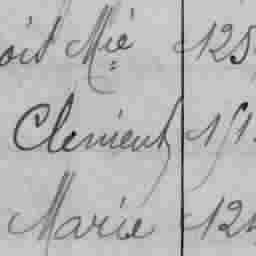 oit Mie 125
Clement 151
Marie 124